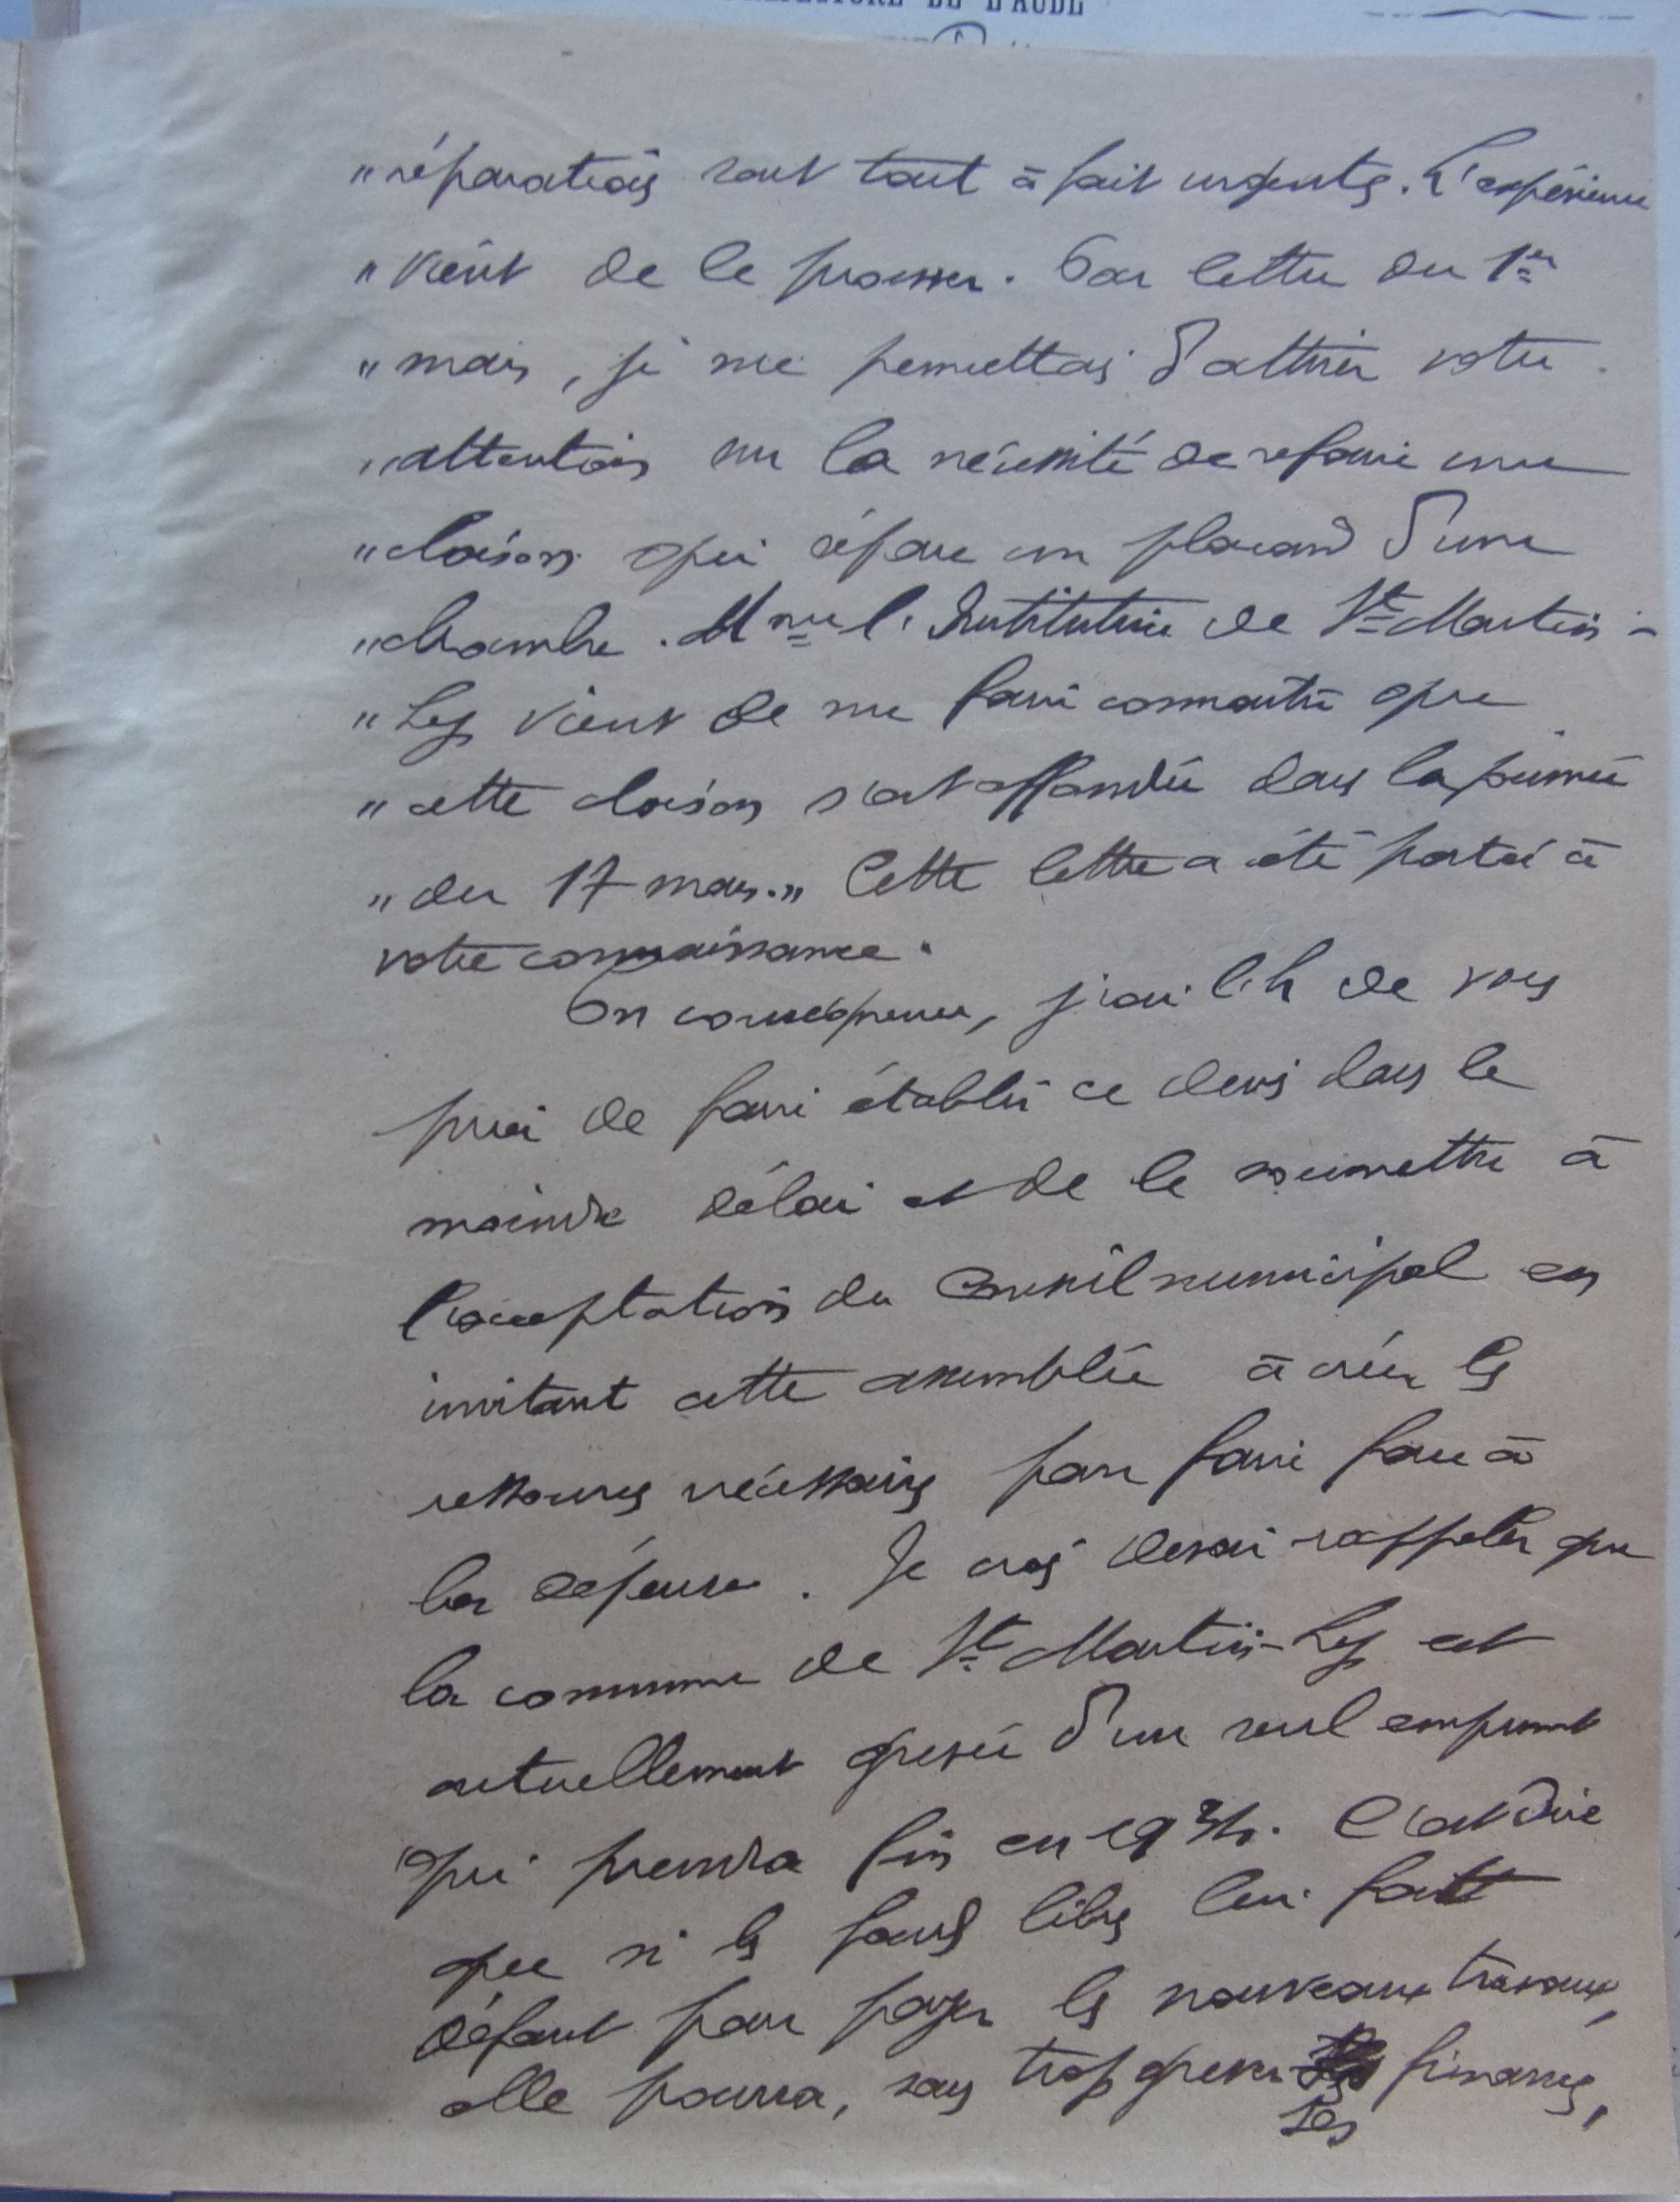 PRÉFECTURE DE L'AUDE
" réparations sont tout à fait urgentes. L'expérience
" vient de le prouver. Par lettre du 1er
" mars, je me permettais d'attirer votre
" attention sur la nécessité de refaire une
" cloison qui sépare un placard d'une
" chambre. Mme l'Institutrice de St Martin-
" Lys vient de me faire connaître que
" cette cloison s'est effondrée dans la journée
" du 17 mars." Cette lettre a été portée à
votre connaissance.
En conséquence, j'ai l'h de vous
prier de faire établir ce devis dans le
moindre délai et de le soumettre à
l'acceptation du Conseil municipal en
invitant cette assemblée à créer les
ressources nécessaires pour faire face à
la dépense. Je crois devoir rappeler que
la commune de St Martin-Lys est
actuellement grevée d'un seul emprunt
qui prendra fin en 1934. C'est dire
que si les fonds libres lui font
défaut pour payer les nouveaux travaux,
elle pourra, sans trop grever finances,
ses